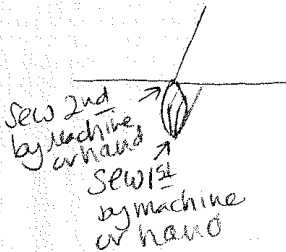 Sew 2nd
by Machine
or hand
Sew 1st
by machine
or hand